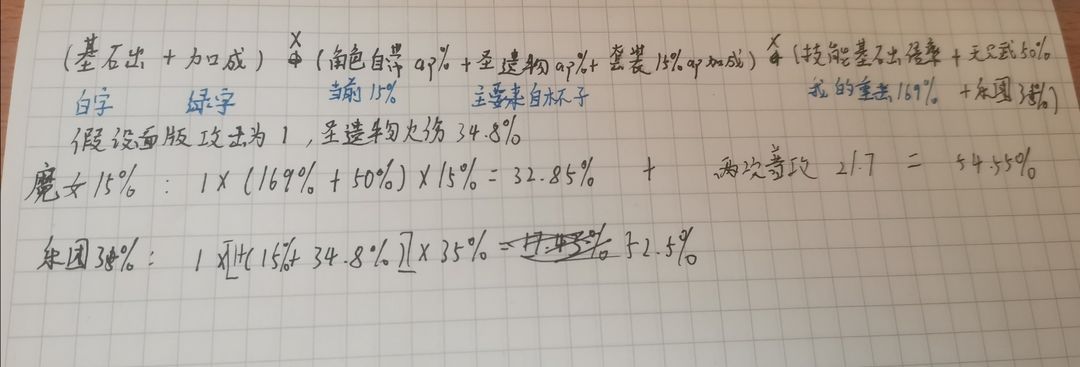 (基石出 + 加成) × (角色自带 ap% + 圣遗物 ap% + 套装 15% ap加成) × (技能基石出倍率 + 天文武50%
白字 绿字 当前 15% 主要来自杯子 我的重击 169% + 乐团 35%)
假设面版攻击为 1 , 圣遗物火伤 34.8%
魔女 15% : 1 × (169% + 50%) × 15% = 32.85% + 两次普攻 21.7 = 54.55%
乐团 35% : 1 ×[1+(15%+ 34.8%)] × 35% = 52.5%